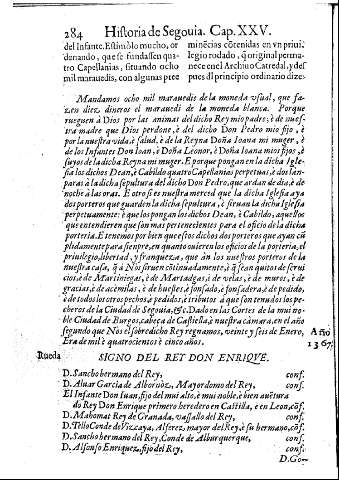 284 Historia de Segouia. Cap. XXV.
del Infante. Estimòlo mucho, or
denando, que se fundassen quatro
Capellanias, situando ocho
mil marauedis, con algunas pree
minẽcias cõtenidas en vn priui-
legio rodado, q̃ original perma-
nece en el Archiuo Catredal, y des
pues dl principio ordinario dize:
Mandamos ocho mil marauedis de la moneda vsual, que fa-
zen diez dineros el marauedi de la moneda blanca. Porque
rueguen à Dios por las animas del dicho Rey mio padre; è de nues-
tra madre que Dios perdone, è del dicho Don Pedro mio fijo, è
por la nuestra vida, è salud, è de la Reyna Doña Ioana mi muger, è
de los Infantes Don Ioan, è Doña Leonor, è Doña Ioana mios fijos, è
suyos de la dicha Reyna mi muger. E porque pongan en la dicha Igle-
sia los dichos Dean, è Cabildo quatro Capellanias perpetuas, è dos lan-
paras à la dicha sepultura del dicho Don Pedro, que ardan de dia, è de
noche à las oras. Otro si es nuestra merced que la dicha Iglesia aya
dos porteros que guarden la dicha sepultura, è siruan la dicha Iglesia
perpetuamente: è que los pongan los dichos Dean, è Cabildo, aquellos
que entendieren que son mas pertenecientes para el oficio de la dicha
porteria. E tenemos por bien que estos dichos dos porteros que ayan cũ
plidamente para sienpre, en quanto ouieren los oficios de la porteria, el
preuilegio, libertad, y franqueza, que àn los nuestros porteros de la
nuestra casa, q̃ à Nos siruen cõtinuadamente, è q̃ sean quitos de serui
cios, è de Martiniegas, è de Marzadgas, è de velas, è de muros, è de
gracias, è de acemilas, è de huestes, è fonsado, è fonsadera, è de pedido,
è de todos los otros pechos, è pedidos, è tributos à que son tenudos los pe-
cheros de la Ciudad de Segouia, &c. Dado en las Cortes de la mui no-
ble Ciudad de Burgos, cabeça de Castiella, è nuestra càmara, en el año
segundo que Nos el sobredicho Rey regnamos, veinte y seis de Enero,
Era de mil è quatrocientos è cinco años.
Año
1367.
Rueda SIGNO DEL REY DON ENRIQVE.
D. Sancho hermano del Rey, conf.
D. Aluar Garcia de Albornoz, Mayordomo del Rey, conf.
El Infante Don Iuan, fijo del mui alto, è mui noble è bien auẽtura
do Rey Don Enrique primero heredero en Castilla, e en Leon, cõf.
D. Mahomat Rey de Granada, vassallo del Rey, conf.
D. Tello Conde de Vizcaya, Alferez mayor del Rey, è su hermano, cõf.
D. Sancho hermano del Rey, Conde de Alburquerque, conf.
D. Alfonso Enriquez, fijo del Rey, conf.
D. Go-